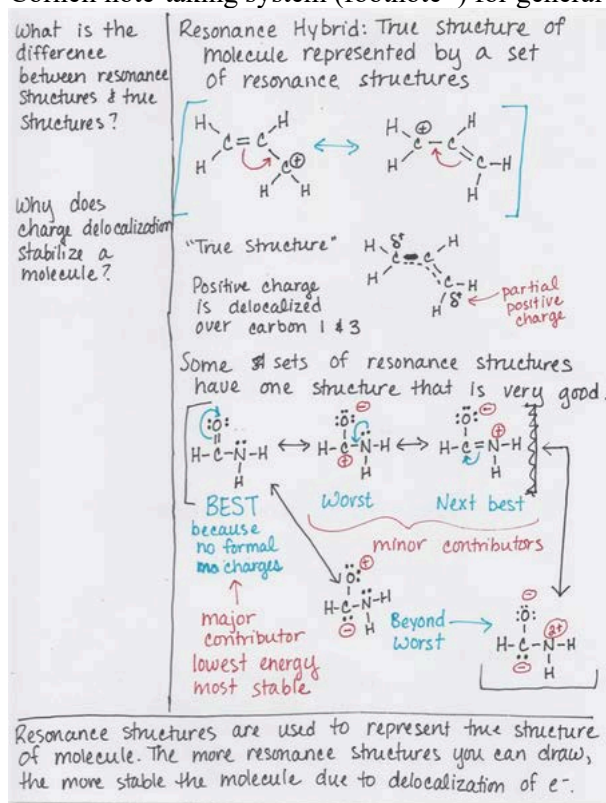 Cornell note-taking system (footnote ) for general
What is the
difference
between resonance
Structures & true
Structures?
Why does
charge delocalization
stabilize a
molecule?
Resonance Hybrid: True structure of
molecule represented by a set
of resonance structures
H H
C=C
H C⊕
H H
H ⊕ H
C-C
H C-H
H
"True Structure"
Positive charge
is delocalized
over carbon 1 & 3
H δ+ H
C C
H C-H
H δ+
partial
positive
charge
Some sets of resonance structures
have one structure that is very good.
:O:
H-C-N-H
H
:O: ⊖
H-C-N-H
⊕ H
:O: ⊖
⊕
H-C=N-H
H
BEST
because
no formal
charges
Worst
Next best
minor contributors
major
contributor
lowest energy
most stable
:O: ⊕
H-C-N-H
⊖ H
Beyond
Worst
⊖
:O:
2+
H-C-N-H
⊖ H
Resonance structures are used to represent true structure
of molecule. The more resonance structures you can draw,
the more stable the molecule due to delocalization of e-.